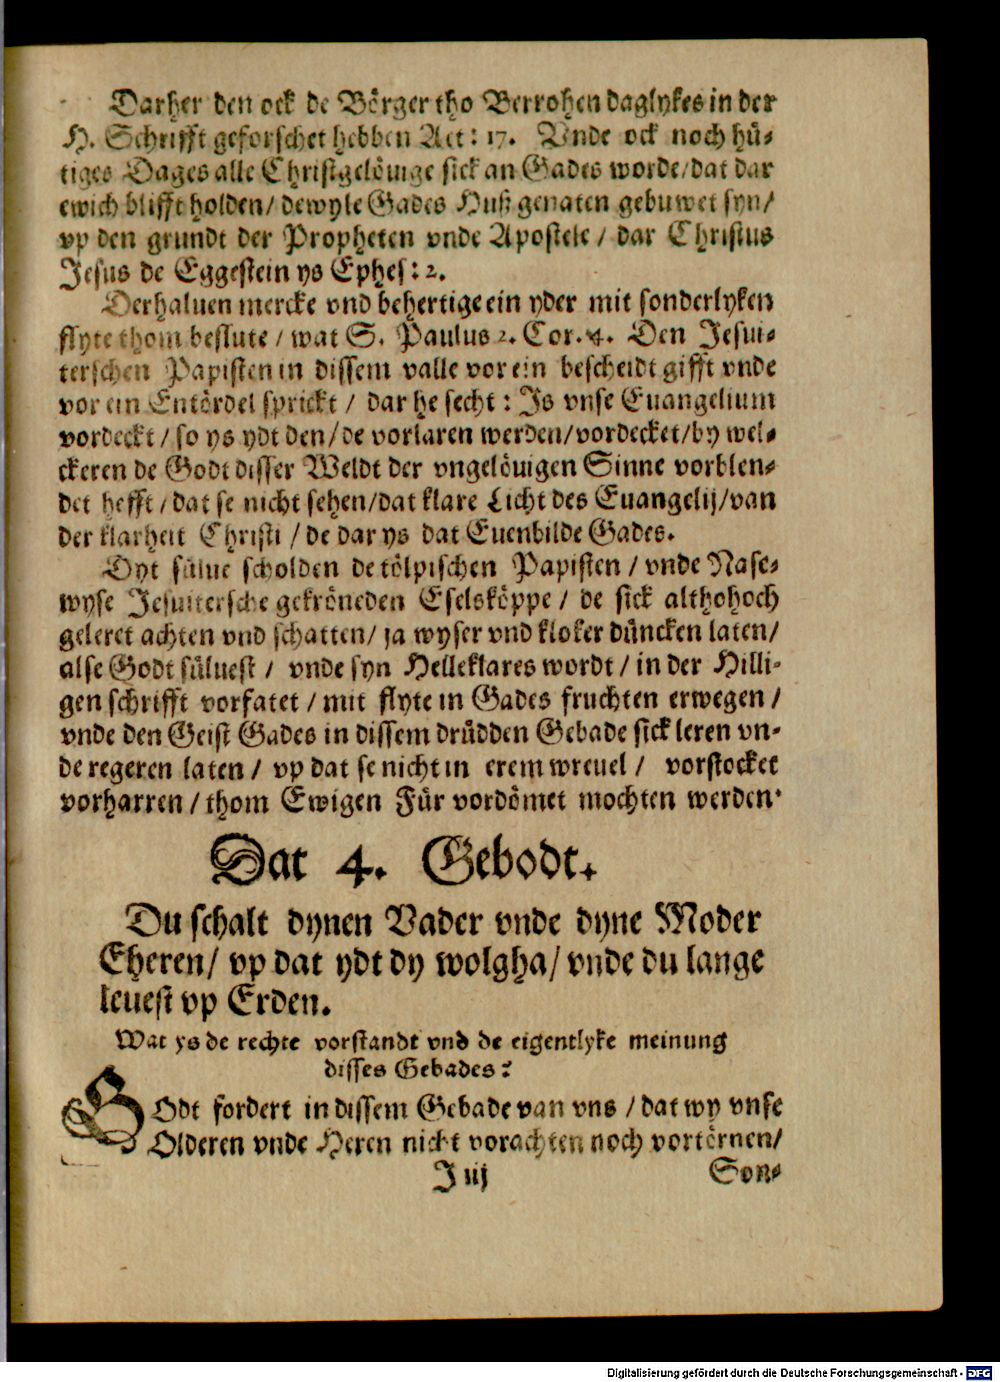 Darher den ock de Börger tho Berrohen daglykes in der
H. Schrifft geforschet hebben Act: 17. Vnde ock noch hü-
tiges Dages alle Christgelöuige sick an Gades worde/dat dar
ewich blifft holden/ dewyle Gades Huß genaten gebuwet syn/
vp den grundt der Propheten vnde Apostele / dar Christus
Jesus de Eggestein ys Ephes: 2.
Derhaluen mercke vnd behertige ein yder mit sonderlyken
flyte thom beslute / wat S. Paulus 2. Cor. 4. Den Jesui-
terschen Papisten in dissem valle vor ein bescheidt gifft vnde
vor ein Entördel sprickt / dar he secht : Js vnse Euangelium
vordeckt / so ys ydt den/ de vorlaren werden/vordecket/by wel-
ckeren de Godt disser Weldt der vngelöuigen Sinne vorblen-
det hefft / dat se nicht sehen/dat klare Licht des Euangelij/van
der klarheit Christi / de dar ys dat Euenbilde Gades.
Dyt sülue scholden de tölpischen Papisten / vnde Nase-
wyse Jesuitersche gekröneden Eselsköppe / de sick althohoch
geleret achten vnd schatten/ ja wyser vnd kloker düncken laten/
alse Godt süluest / vnde syn Helleklares wordt / in der Hilli-
gen schrifft vorfatet / mit flyte in Gades fruchten erwegen /
vnde den Geist Gades in dissem drüdden Gebade sick leren vn-
de regeren laten / vp dat se nicht in erem wreuel / vorstocket
vorharren / thom Ewigen Für vordömet mochten werden.
Dat 4. Gebodt.
Du schalt dynen Vader vnde dyne Moder
Eheren/ vp dat ydt dy wolgha/ vnde du lange
leuest vp Erden.
Wat ys de rechte vorstandt vnd de eigentlyke meinung
disses Gebades?
GOdt fordert in dissem Gebade van vns / dat wy vnse
Olderen vnde Heren nicht vorachten noch vortörnen/
J iij Son-
Digitalisierung gefördert durch die Deutsche Forschungsgemeinschaft - DFG